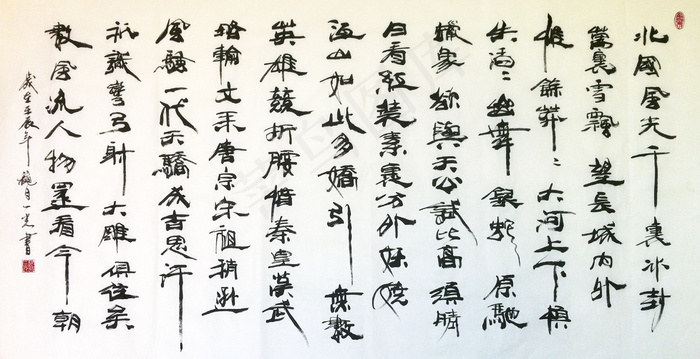 北國風光千裏冰封
萬裏雪飄望長城內外
惟餘莽々大河上下頓
失滔々山舞銀蛇原馳
蠟象欲與天公試比高須晴
日看紅裝素裹分外妖嬈
江山如此多嬌引無數
英雄競折腰惜秦皇漢武
略輸文采唐宗宋祖稍遜
風騷一代天驕成吉思汗
祇識彎弓射大雕俱往矣
數風流人物還看今朝
歲在壬辰年月一光書